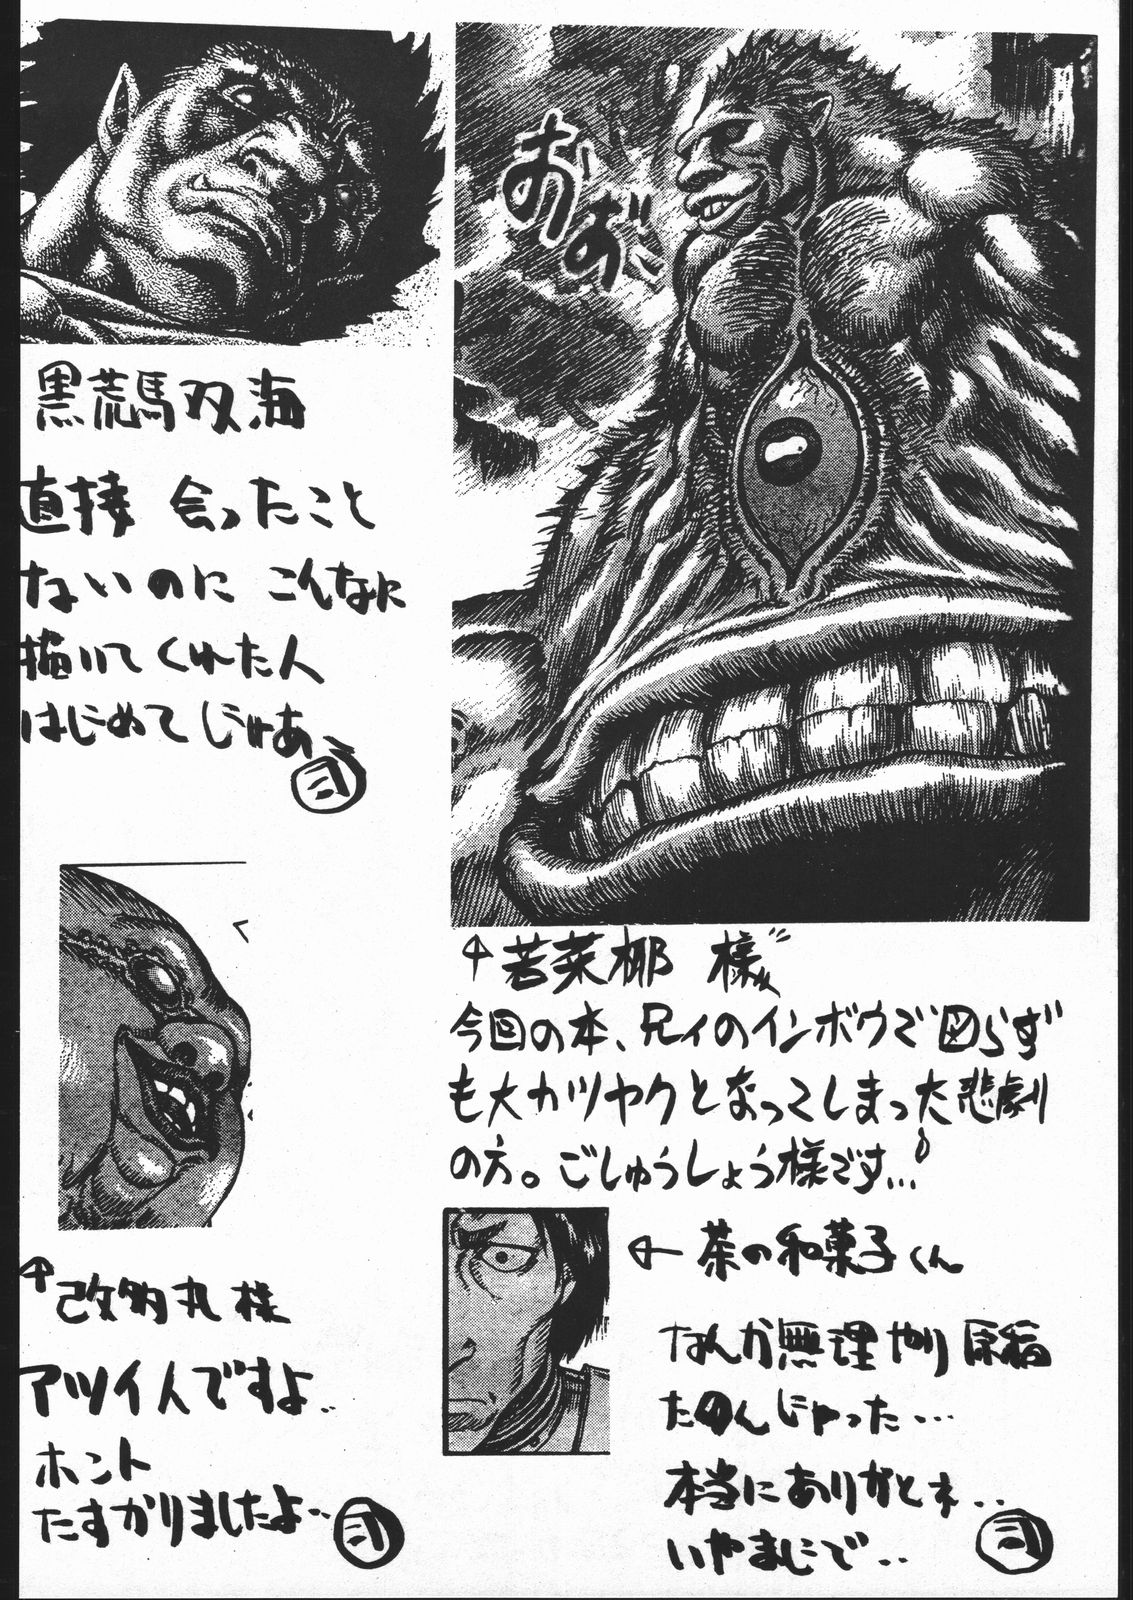 おお
黒荒馬双海
直接 会ったこと
ないのに こんなに
描いてくれた人
はじめてじゃあ〜
弐
↑若菜椰 様
今回の本、兄ィのインボウで図らず
も大カツヤクとなってしまった悲劇
の方。ごしゅうしょう様です…
←茶の和菓子くん
なんか無理やり原稿
たのんじゃった…
本当にありがとネ..
いやまじで..
弐
↑改的丸様
アツイ人ですよ..
ホント
たすかりましたよ..
弐